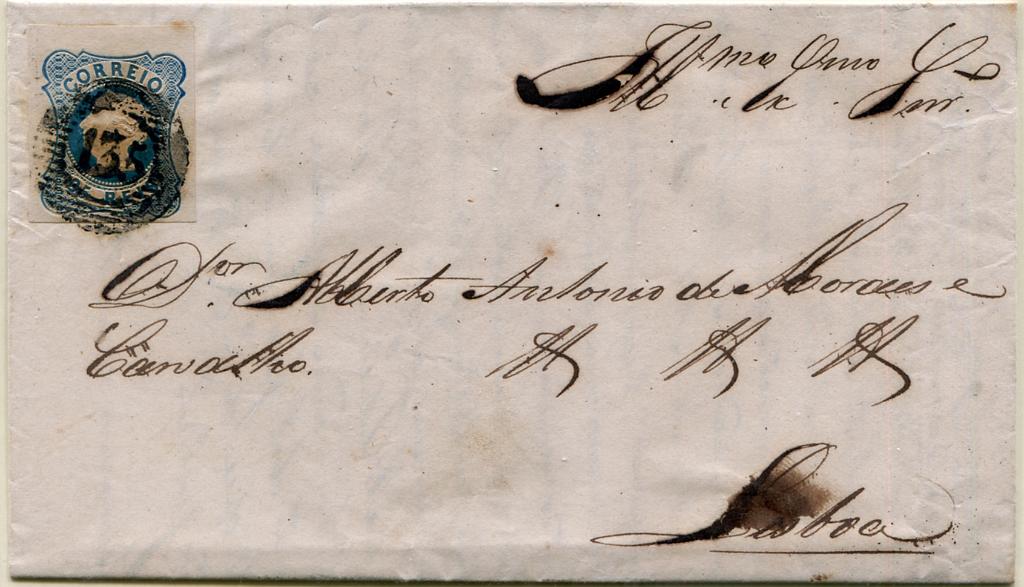 CORREIO
REIS
Illmo Exmo Sr
Dor. Alberto Antonio de Moraes e
Carvalho.
Lisboa